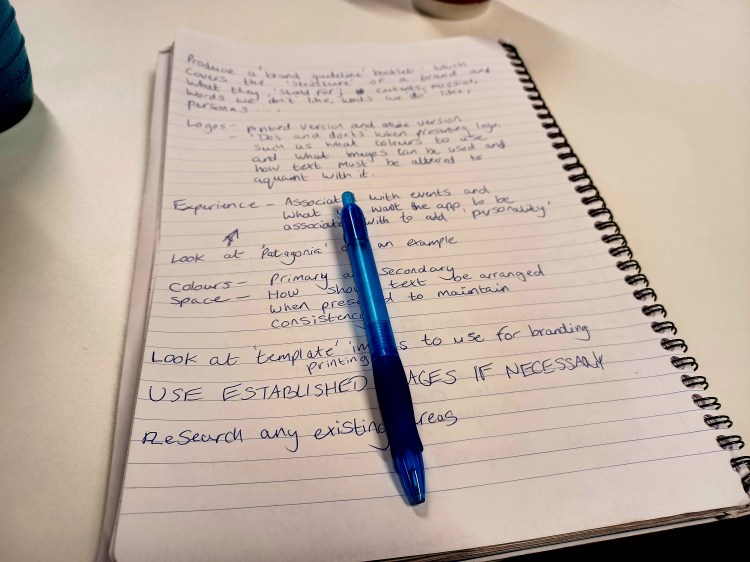 Produce a 'brand guideline' booklet which
covers the 'structure' of a brand and
what they 'stand for', mission,
words we don't like, words we do like,
personas ....
Logos - printed version and online version
- 'Dos and don'ts when presenting logo,
such as what colours to use
and what images can be used and
how text must be altered to
aquaint with it.
Experience - Associat with events and
what want the app to be
associate with to add 'personality'
Look at 'Patagonia' an example
Colours - Primary a secondary
Space - How sho text be arranged
when prese d to maintain
consistency
Look at 'template' im s to use for branding
printing
USE ESTABLISHED AGES IF NECESSARY
Research any existing reas